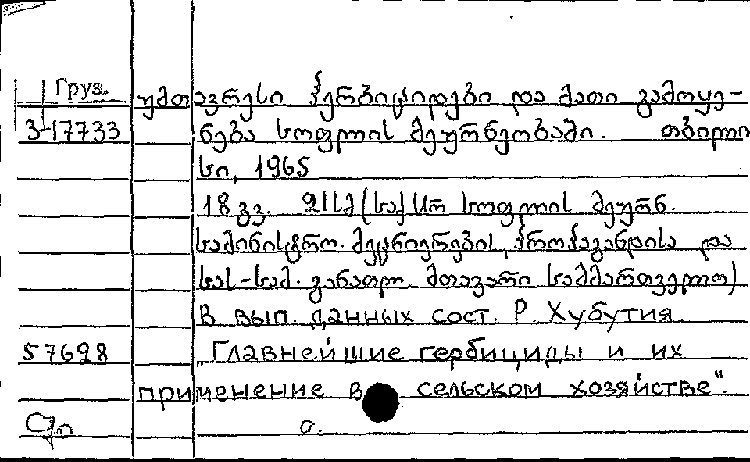 Груз. უმთავრესი ჰერბიციდები და მათი გამოყე-
3-17733 ნება სოფლის მეურნეობაში. თბილი
სი, 1965
18 გვ. 21სმ (საქ სოფლის მეურნ.
სამინისტრო. მეცნიერების, პროპაგანდისა და
სას-სამ. განათლ. მთავარი სამმართველო)
В вып. данных сост. Р. Хубутия
57698 „Главнейшие гербициды и их
применение в сельском хозяйстве“.
о.